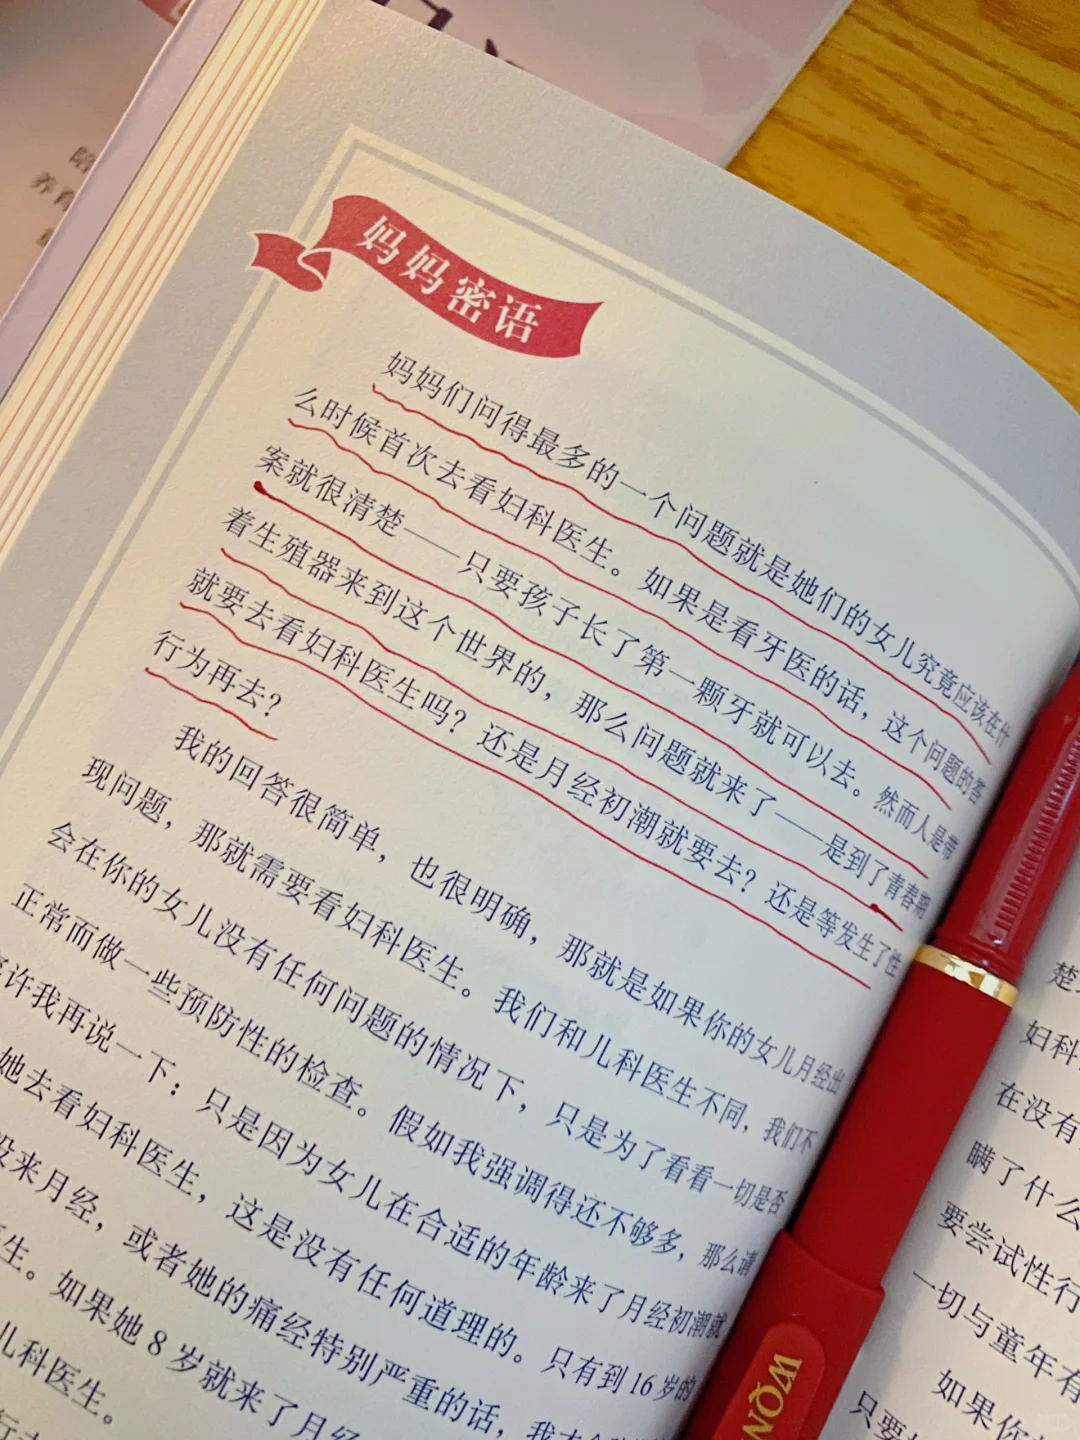 妈妈密语
妈妈们问得最多的一个问题就是她们的女儿究竟应该在什
么时候首次去看妇科医生。如果是看牙医的话，这个问题的答
案就很清楚——只要孩子长了第一颗牙就可以去。然而人是带
着生殖器来到这个世界的，那么问题就来了——是到了青春期
就要去看妇科医生吗？还是月经初潮就要去？还是等发生了性
行为再去？
我的回答很简单，也很明确，那就是如果你的女儿月经出
现问题，那就需要看妇科医生。我们和儿科医生不同，我们不
会在你的女儿没有任何问题的情况下，只是为了看看一切是否
正常而做一些预防性的检查。假如我强调得还不够多，那么请
许我再说一下：只是因为女儿在合适的年龄来了月经初潮就
她去看妇科医生，这是没有任何道理的。只有到16岁的
没来月经，或者她的痛经特别严重的话，我
生。如果她8岁就来了月经
儿科医生。
行
楚
妇科
在没有
瞒了什么
要尝试性行
一切与童年有
如果你
只要
WONM
养育
陪